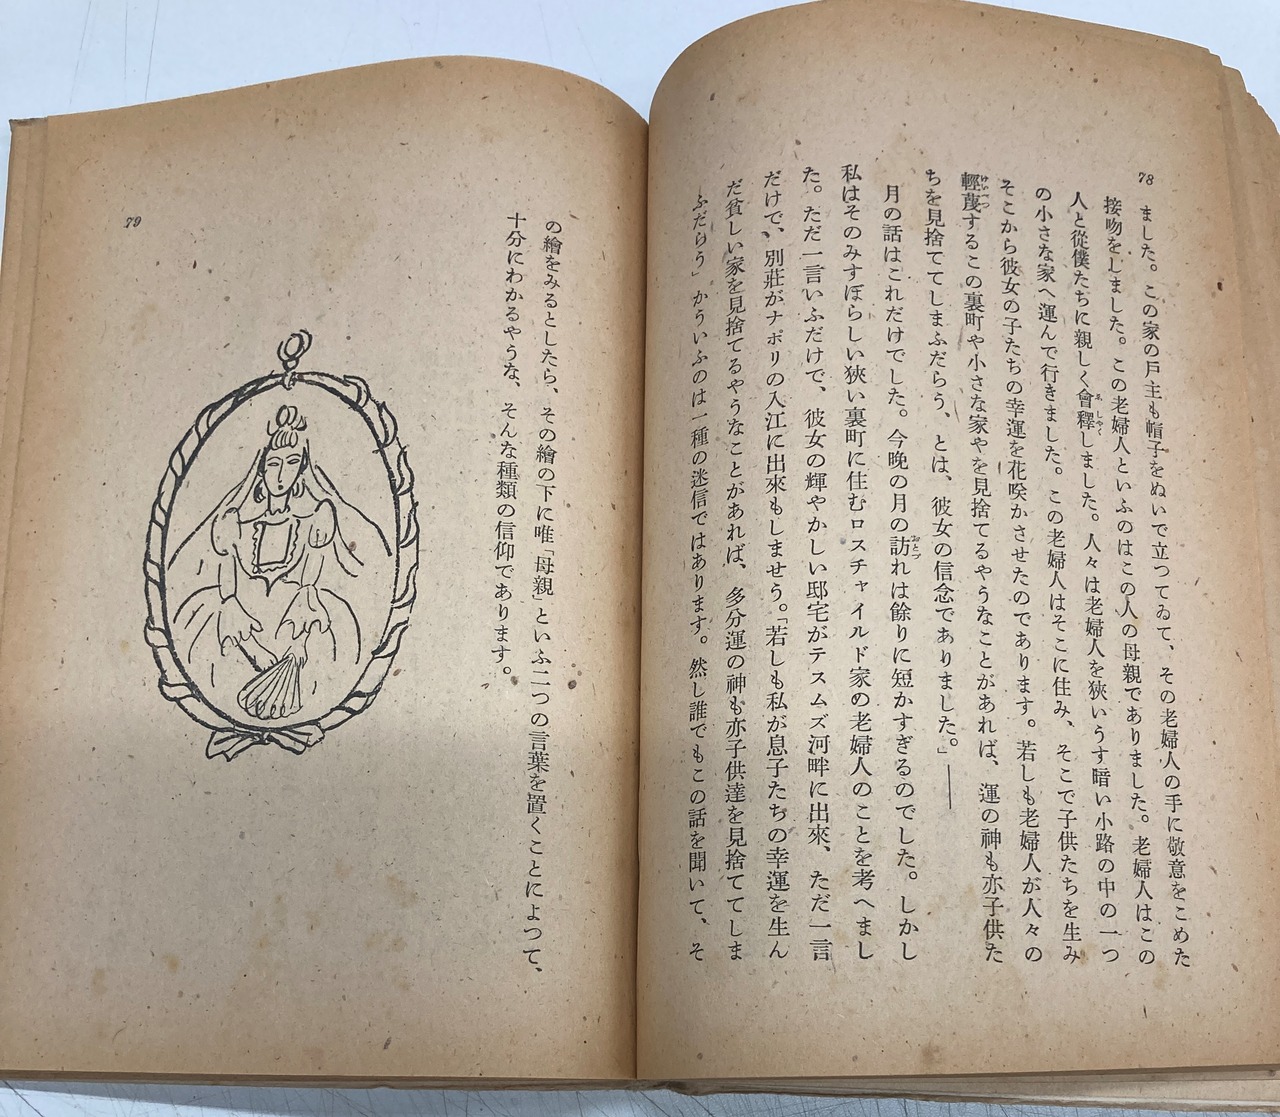 78
ました。この家の戸主も帽子をぬいで立つてゐて、その老婦人の手に敬意をこめた
接吻をしました。この老婦人といふのはこの人の母親でありました。老婦人はこの
人と從僕たちに親しく會釋しました。人々は老婦人を狹いうす暗い小路の中の一つ
の小さな家へ運んで行きました。この老婦人はそこに住み、そこで子供たちを生み
そこから彼女の子たちの幸運を花咲かさせたのであります。若しも老婦人が人々の
輕蔑するこの裏町や小さな家やを見捨てるやうなことがあれば、運の神も亦子供た
ちを見捨ててしまふだらう、とは、彼女の信念でありました。」――
月の話はこれだけでした。今晩の月の訪れは餘りに短かすぎるのでした。しかし
私はそのみすぼらしい狹い裏町に住むロスチャイルド家の老婦人のことを考へまし
た。ただ一言いふだけで、彼女の輝やかしい邸宅がテスムズ河畔に出來、ただ一言
だけで、別莊がナポリの入江に出來もしませう。「若しも私が息子たちの幸運を生ん
だ貧しい家を見捨てるやうなことがあれば、多分運の神も亦子供達を見捨ててしま
ふだらう」かういふのは一種の迷信ではあります。然し誰でもこの話を聞いて、そ
の繪をみるとしたら、その繪の下に唯「母親」といふ二つの言葉を置くことによつて、
十分にわかるやうな、そんな種類の信仰であります。
79